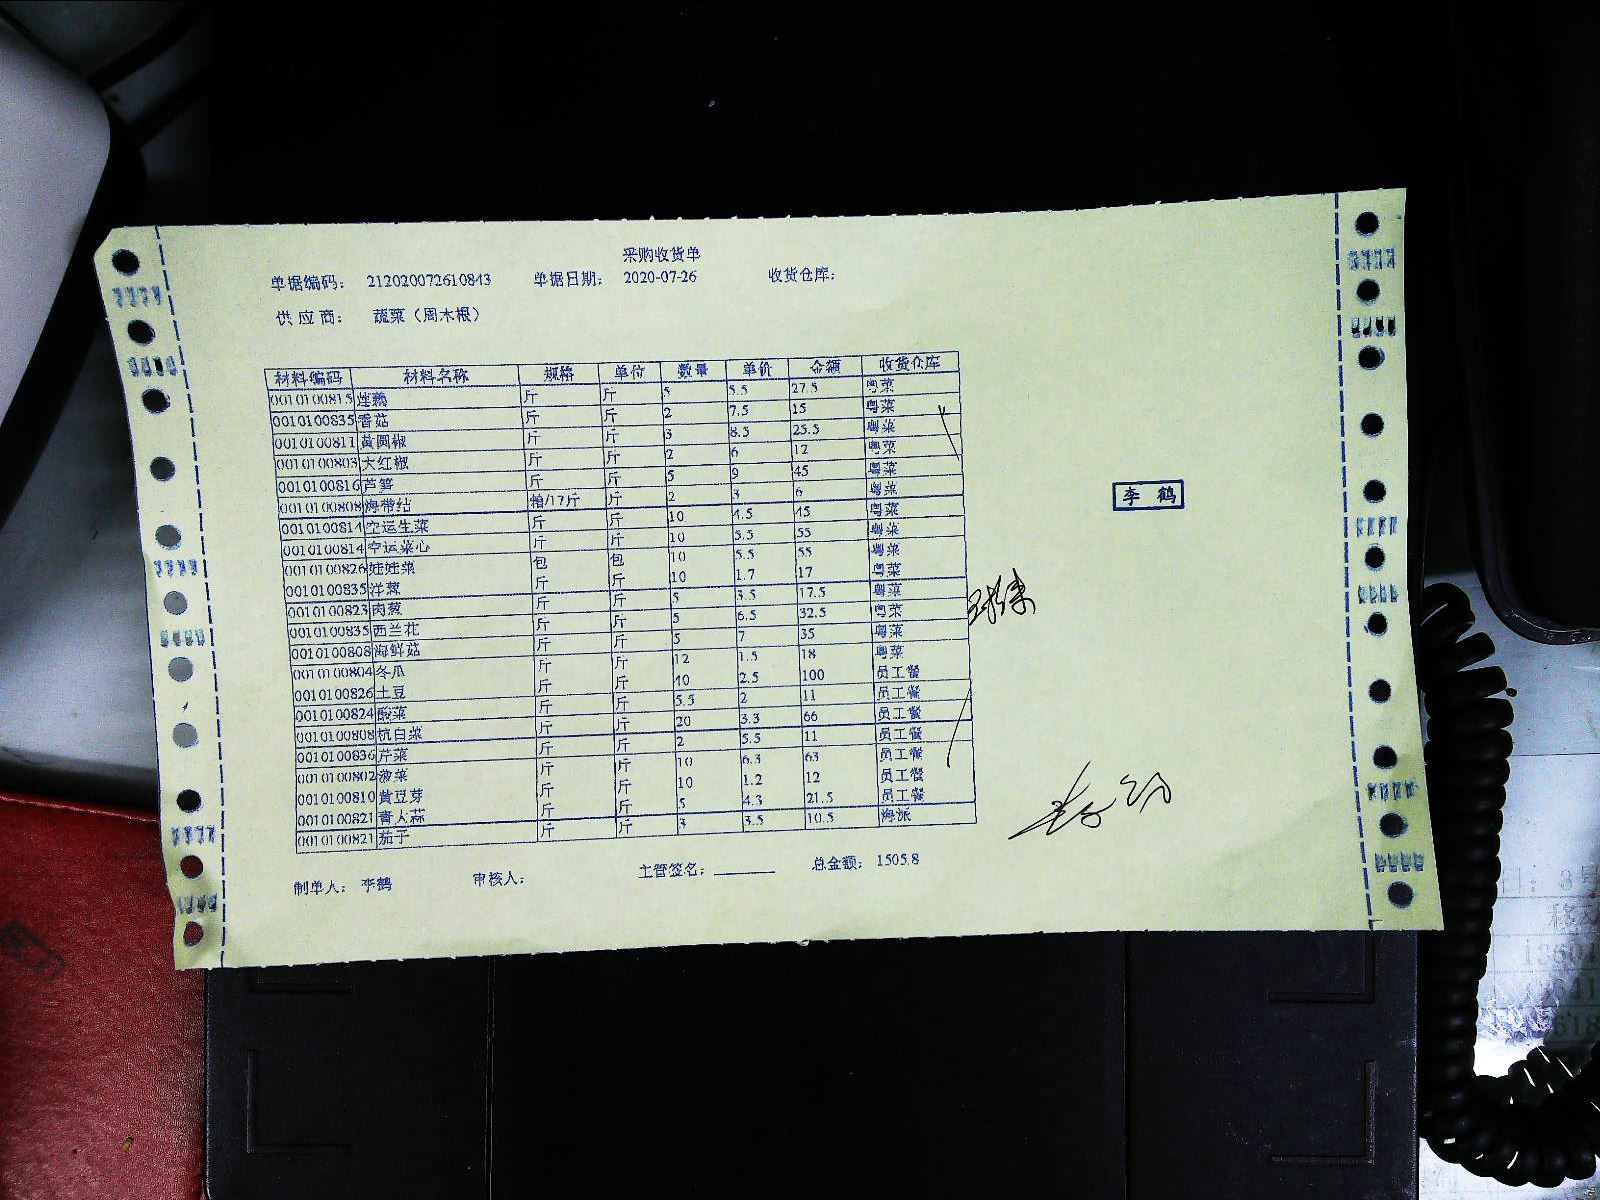 采购收货单
单据编码： 212020072610843 单据日期： 2020-07-26 收货仓库：
供应商： 蔬菜（周木根）
材料编码 材料名称 规格 单位 数量 单价 金额 收货仓库
0010100815 莲藕 斤 斤 5 5.5 27.5 粤菜
0010100835 香菇 斤 斤 2 7.5 15 粤菜
0010100811 黄圆椒 斤 斤 3 8.5 25.5 粤菜
0010100803 大红椒 斤 斤 2 6 12 粤菜
0010100816 芦笋 斤 斤 5 9 45 粤菜
0010100808 海带结 箱/17斤 斤 2 3 6 粤菜
0010100814 空运生菜 斤 斤 10 4.5 45 粤菜
0010100814 空运菜心 斤 斤 10 5.5 55 粤菜
0010100826 娃娃菜 包 包 10 5.5 55 粤菜
0010100835 洋葱 斤 斤 10 1.7 17 粤菜
0010100823 肉葱 斤 斤 5 3.5 17.5 粤菜
0010100835 西兰花 斤 斤 5 6.5 32.5 粤菜
0010100808 海鲜菇 斤 斤 5 7 35 粤菜
0010100804 冬瓜 斤 斤 12 1.5 18 粤菜
0010100826 土豆 斤 斤 40 2.5 100 员工餐
0010100824 酸菜 斤 斤 5.5 2 11 员工餐
0010100808 杭白菜 斤 斤 20 3.3 66 员工餐
0010100836 芹菜 斤 斤 2 5.5 11 员工餐
0010100802 菠菜 斤 斤 10 6.3 63 员工餐
0010100810 黄豆芽 斤 斤 10 1.2 12 员工餐
0010100821 青大蒜 斤 斤 5 4.3 21.5 员工餐
0010100821 茄子 斤 斤 3 3.5 10.5 海派
制单人： 李鹤 审核人： 主管签名： 总金额： 1505.8
李 鹤